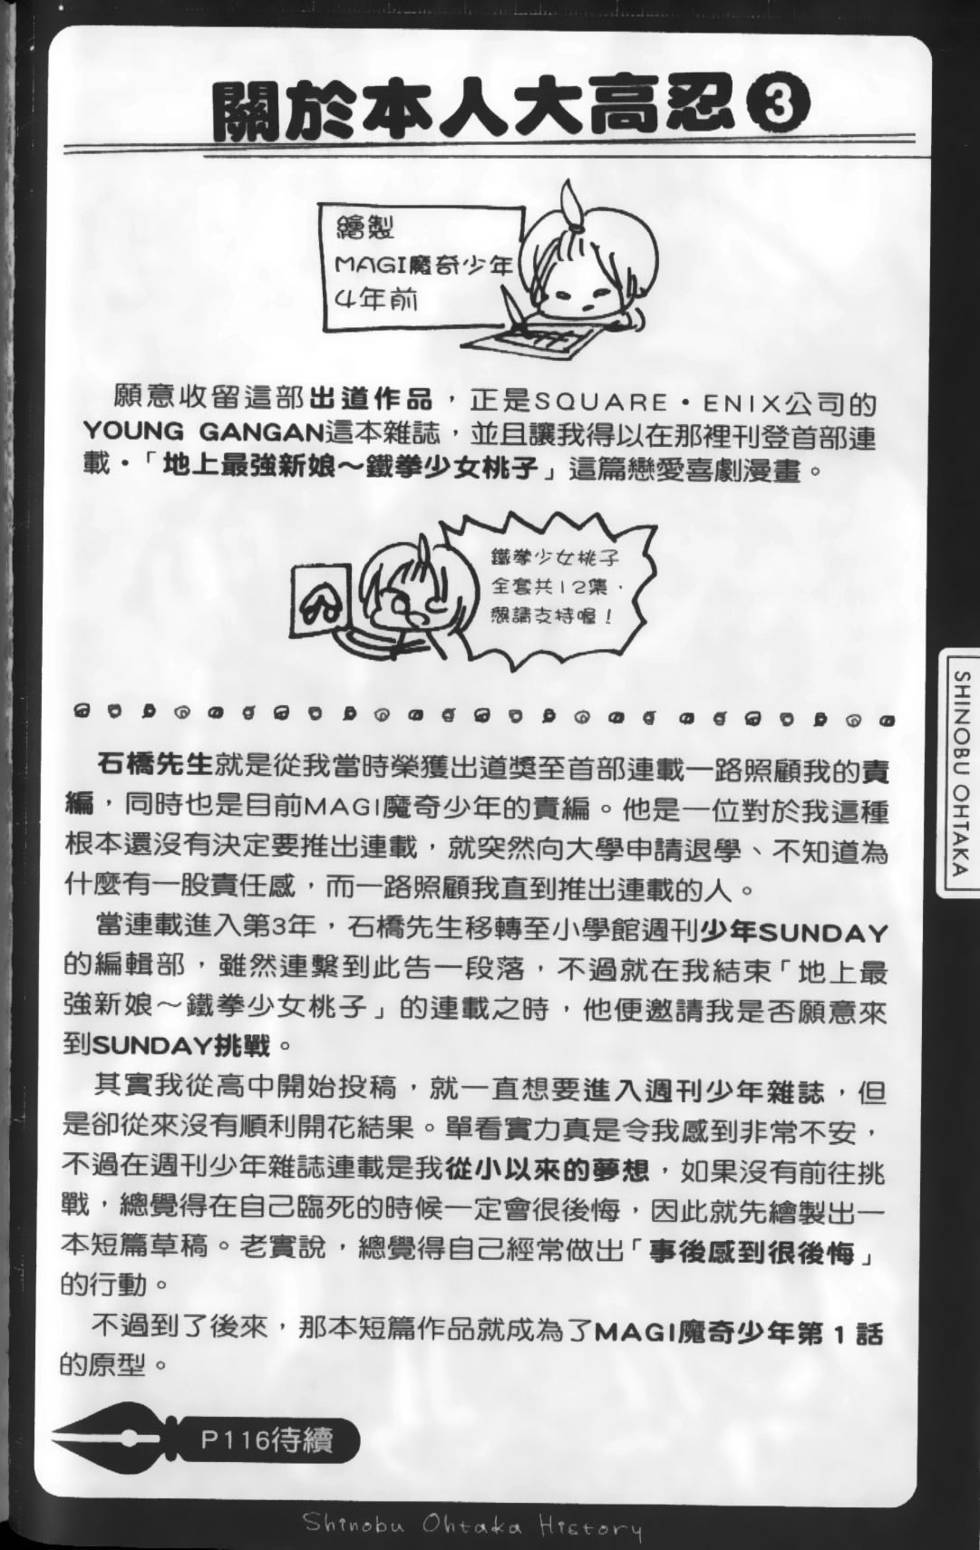 關於本人大高忍❸
繪製
MAGI魔奇少年
4年前
願意收留這部出道作品，正是SQUARE・ENIX公司的
YOUNG GANGAN這本雜誌，並且讓我得以在那裡刊登首部連
載・「地上最強新娘～鐵拳少女桃子」這篇戀愛喜劇漫畫。
鐵拳少女桃子
全套共12集，
懇請支持喔！
石橋先生就是從我當時榮獲出道獎至首部連載一路照顧我的責
編，同時也是目前MAGI魔奇少年的責編。他是一位對於我這種
根本還沒有決定要推出連載，就突然向大學申請退學、不知道為
什麼有一股責任感，而一路照顧我直到推出連載的人。
當連載進入第3年，石橋先生移轉至小學館週刊少年SUNDAY
的編輯部，雖然連繫到此告一段落，不過就在我結束「地上最
強新娘～鐵拳少女桃子」的連載之時，他便邀請我是否願意來
到SUNDAY挑戰。
其實我從高中開始投稿，就一直想要進入週刊少年雜誌，但
是卻從來沒有順利開花結果。單看實力真是令我感到非常不安，
不過在週刊少年雜誌連載是我從小以來的夢想，如果沒有前往挑
戰，總覺得在自己臨死的時候一定會很後悔，因此就先繪製出一
本短篇草稿。老實說，總覺得自己經常做出「事後感到很後悔」
的行動。
不過到了後來，那本短篇作品就成為了MAGI魔奇少年第1話
的原型。
P116待續
SHINOBU OHTAKA
Shinobu Ohtaka History